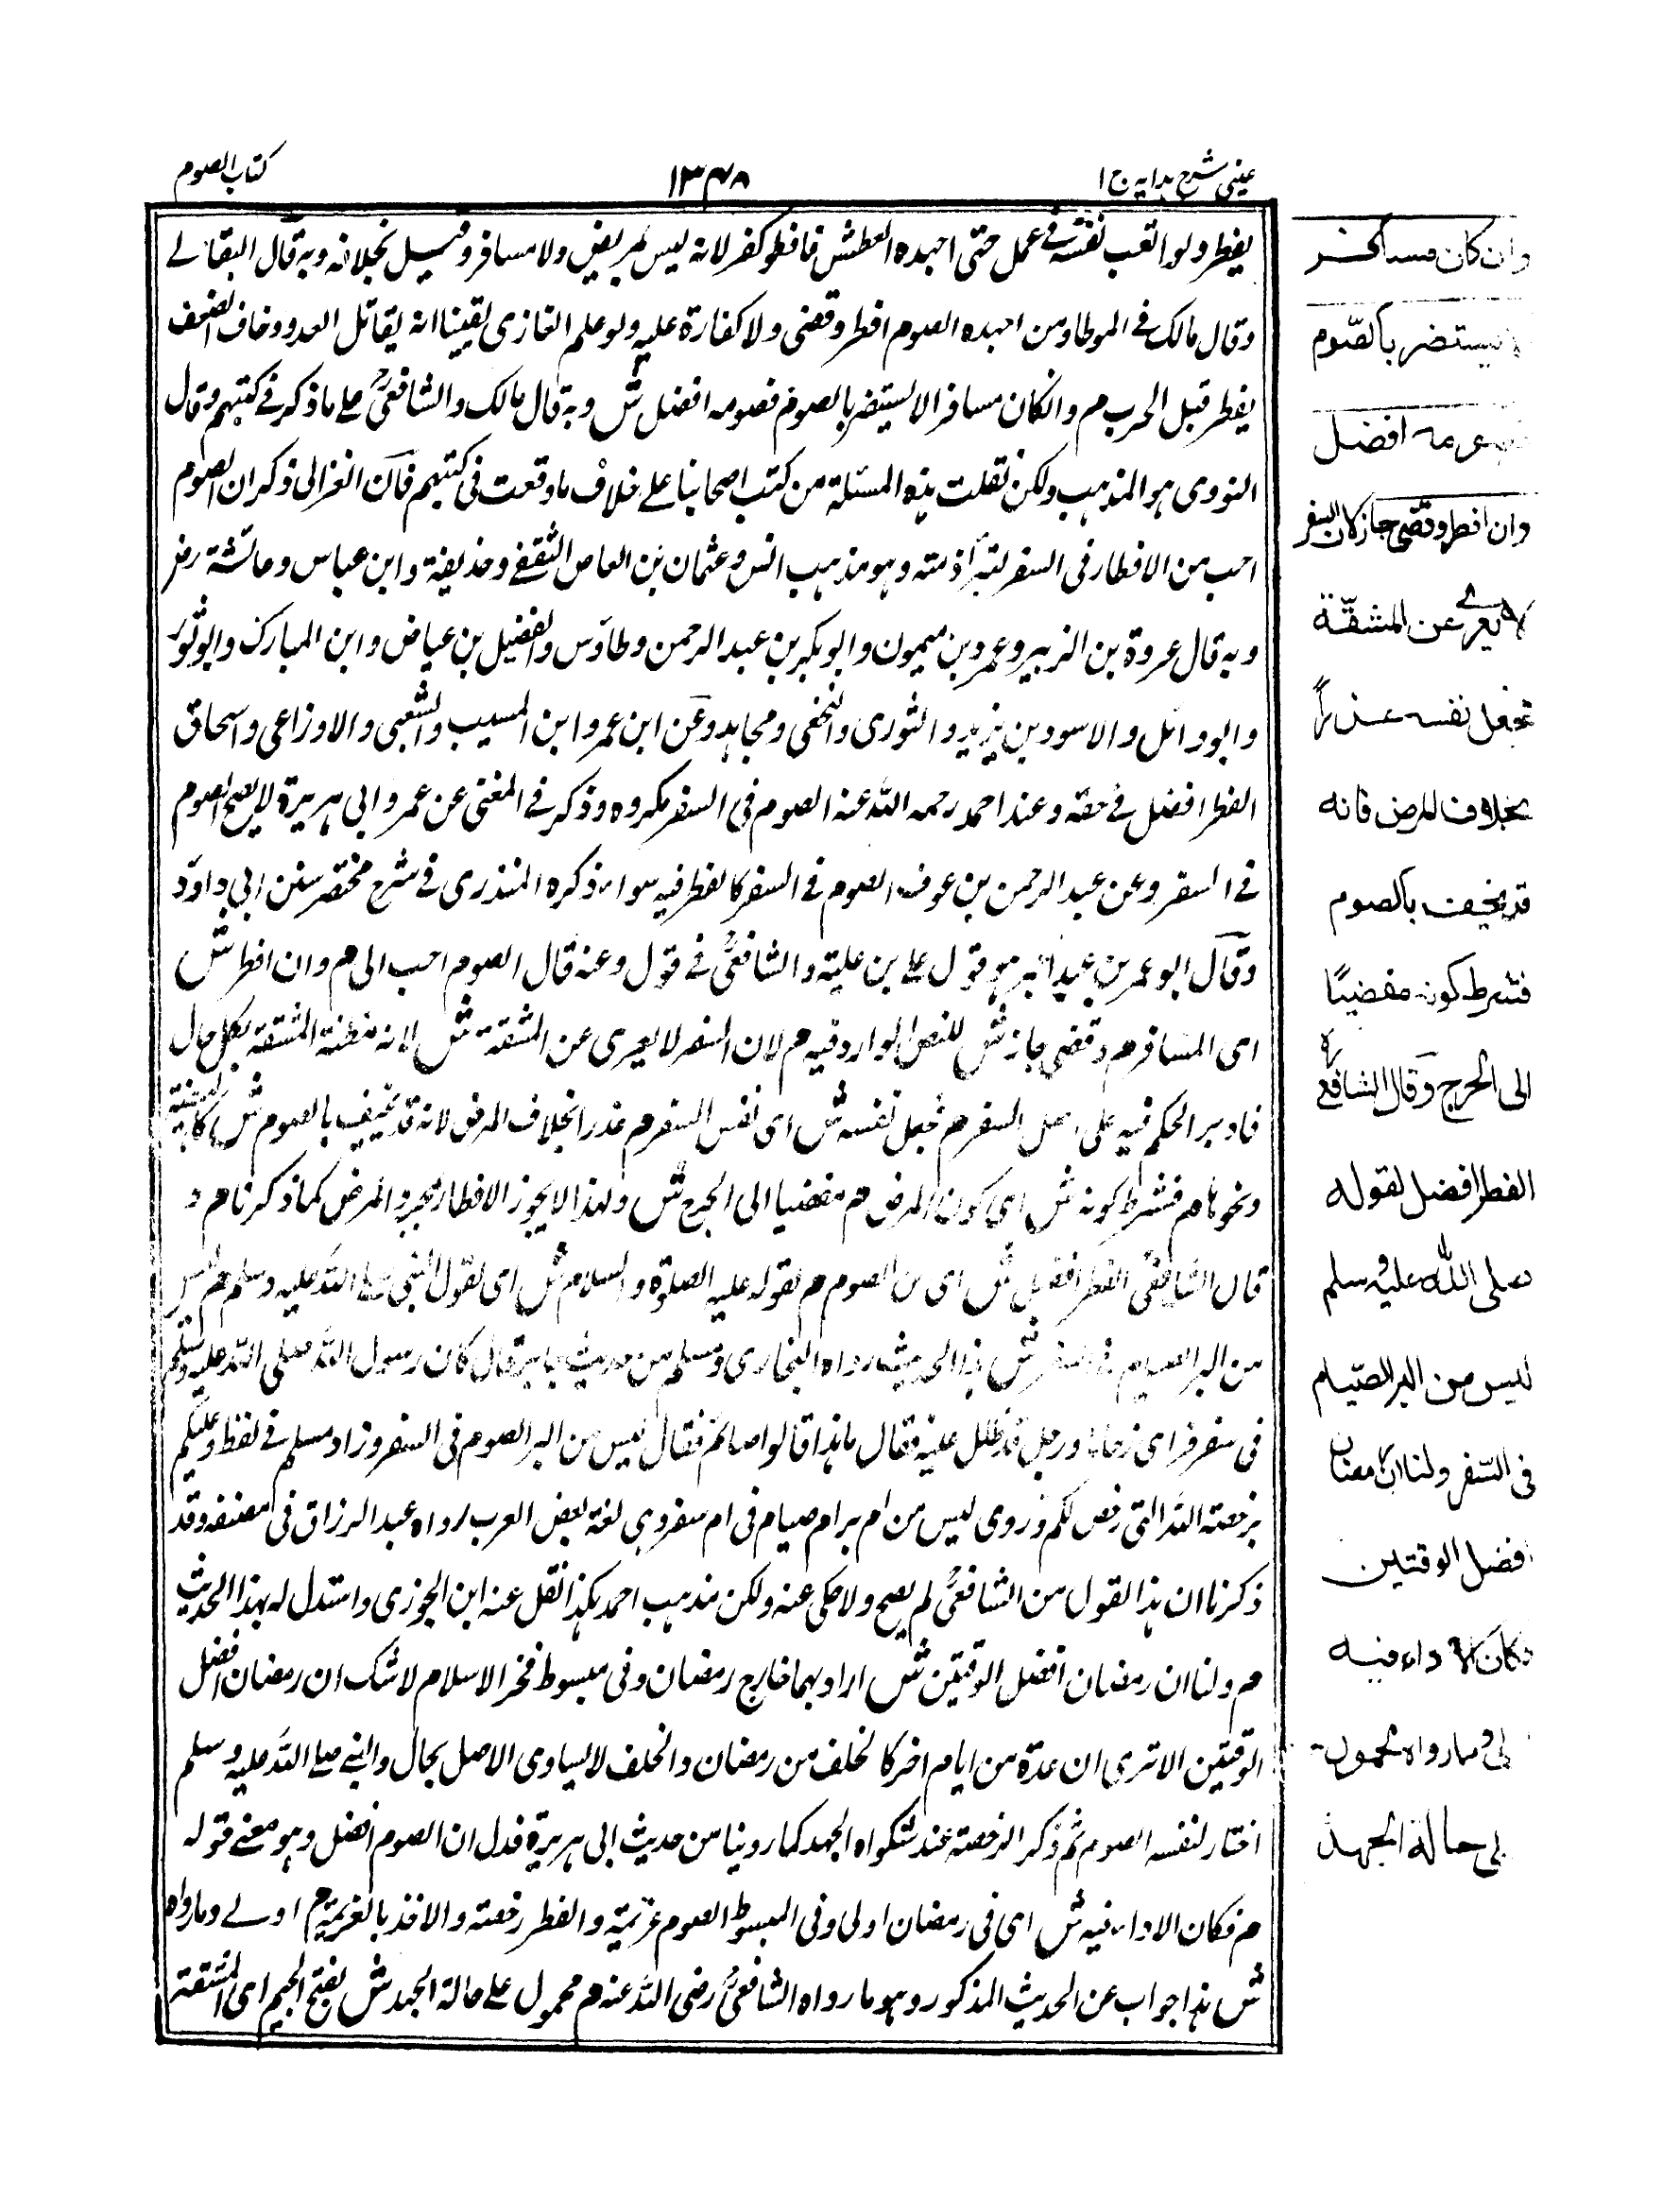 عینی شرح ہدایہ ج ۱
۱۳۴۸
کتاب الصوم
یفطر ولو اتعب نفسہ فی عمل حتی اجہدہ العطش فافطر کفر لانہ لیس بمریض ولا مسافر وقیل بخلافہ وبہ قال البقالے
وقال مالک فی الموطا ومن اجہدہ الصوم افطر وقضی ولا کفارۃ علیہ ولو علم الغازی یقینا انہ یقاتل العدو وخاف الضعف
یفطر قبل الحرب م وانکان مسافرا لا یستضر بالصوم فصومہ افضل ش وبہ قال مالک والشافعیؒ علے ما ذکر فے کتبہم وقال
النووی ہو المذہب ولکن نقلت ہذہ المسئلۃ من کتب اصحابنا علے خلاف ما وقعت فی کتبہم فان الغزالی ذکر ان الصوم
احب من الافطار فی السفر لتبرأ ذمتہ وہو مذہب انس وعثمان بن العاص الثقفے وحذیفۃ وابن عباس وعائشۃ رضہ
وبہ قال عروۃ بن الزبیر وعمرو بن میمون وابو بکر بن عبد الرحمن وطاؤس والفضیل بن عیاض وابن المبارک وابو ثور
وابو وائل والاسود بن یزید والثوری والنخعی ومجاہد وعن ابن عمر وابن المسیب والشعبی والاوزاعی واسحاق
الفطر افضل فے حقہ وعند احمد رحمہ اللہ عنہ الصوم فی السفر مکروہ وذکر فے المغنی عن عمر وابی ہریرۃ لا یصح الصوم
فے السفر وعن عبد الرحمن بن عوف الصوم فے السفر کالفطر فیہ سواء ذکرہ المنذری فے شرح مختصر سنن ابی داؤد
وقال ابو عمر بن عبد البر ہو قول علے بن علیۃ والشافعیؒ فے قول وعنہ قال الصوم احب الی م وان افطر ش
ای المسافر م وقضی جاز ش للنص الوارد فیہ م لان السفر لا یعری عن المشقۃ ش لانہ مظنۃ المشقۃ بکل حال
فادیر الحکم فیہ علی اصل السفر م فجعل نفسہ ش ای نفس السفر م عذرا بخلاف المرض لانہ قد یخفف بالصوم ش
ونحوہا م فشرط کونہ ش ای کون المرض م مفضیا الی الحرج ش ولہذا لا یجوز الافطار بمجرد المرض کما ذکرنا م و
قال الشافعیؒ الفطر افضل ش ای من الصوم م لقولہ علیہ الصلوۃ والسلام ش ای لقول النبی صلے اللہ علیہ وسلم م لیس
من البر الصیام فی السفر ش ہذا الحدیث رواہ البخاری ومسلم من حدیث جابر قال کان رسول اللہ صلی اللہ علیہ وسلم
فی سفر فرای زحاما ورجل قد ظلل علیہ فقال ما ہذا قالوا صائم فقال لیس من البر الصوم فی السفر وزاد مسلم فے لفظ وعلیکم
برخصۃ اللہ التی رخص لکم وروی لیس من ام بر ام صیام فی ام سفر وہی لغۃ لبعض العرب رواہ عبد الرزاق فی مصنفہ وقد
ذکرنا ان ہذا القول من الشافعیؒ لم یصح ولا حکی عنہ ولکن مذہب احمد ہکذا نقل عنہ ابن الجوزی واستدل لہ بہذا الحدیث
م ولنا ان رمضان افضل الوقتین ش اراد بہما خارج رمضان وفی مبسوط فخر الاسلام لا شک ان رمضان افضل
الوقتین الا تری ان عدۃ من ایام اخر کالخلف من رمضان والخلف لا یساوی الاصل بحال والنبے صلے اللہ علیہ وسلم
اختار لنفسہ الصوم ثم ذکر الرخصۃ عند شکواہ الجہد کما روینا من حدیث ابی ہریرۃ فدل ان الصوم افضل وہو معنے قولہ
م فکان الاداء فیہ ش ای فی رمضان اولی وفی المبسوط الصوم عزیمۃ والفطر رخصۃ والاخذ بالعزیمۃ م اولے وما رواہ
ش ہذا جواب عن الحدیث المذکور وہو ما رواہ الشافعیؒ رضی اللہ عنہ م محمول علے حالۃ الجہد ش بفتح الجیم ای المشقۃ
وان کان مسافرا
یستضر بالصّوم
فصومہ افضل
وان افطر وقضی جاز لان السفر
لا یعرے عن المشقّۃ
فجعل نفسہ عذرًا
بخلاف المرض فانہ
قد یخفف بالصوم
فشرط کونہ مفضیًا
الی الحرج وقال الشافعیؒ
الفطر افضل لقولہ
صلی اللہ علیہ وسلم
لیس من البر الصّیام
فی السّفر ولنا ان رمضان
افضل الوقتین
فکان الاداء فیہ
لی وما رواہ محمول
علی حالۃ الجہد